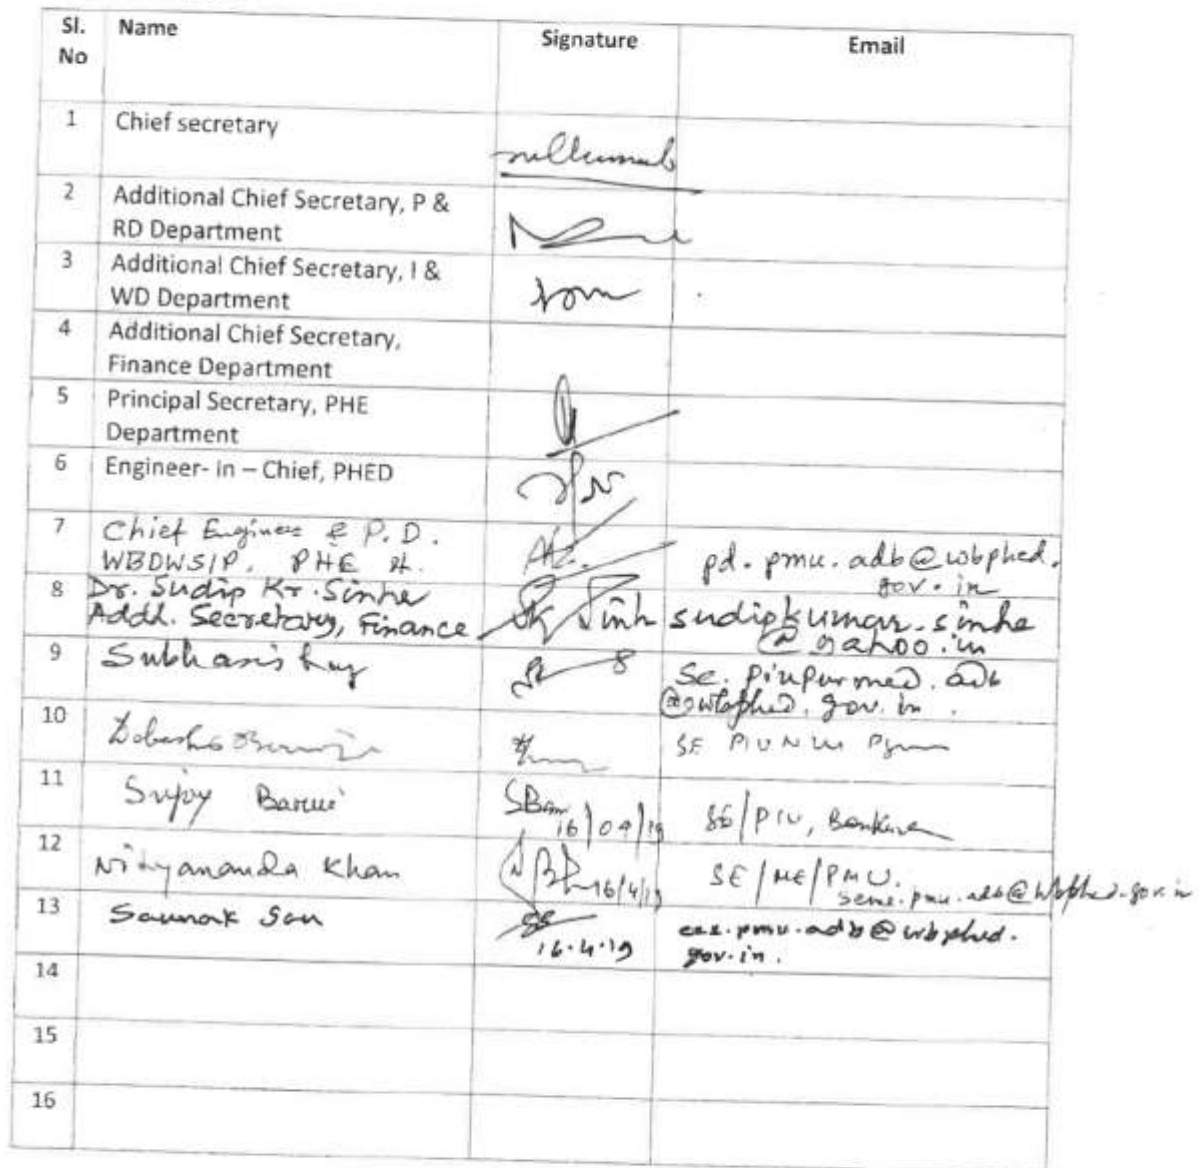 Sl. No Name Signature Email
1 Chief secretary
2 Additional Chief Secretary, P &
RD Department
3 Additional Chief Secretary, I &
WD Department
4 Additional Chief Secretary,
Finance Department
5 Principal Secretary, PHE
Department
6 Engineer- in – Chief, PHED
7 Chief Engineer & P.D.
WBDWSIP, PHE
pd.pmu.adb@wbphed.
gov.in
8 Dr. Sudip Kr. Sinha
Addl. Secretary, Finance
sudipkumar.sinha
@yahoo.in
9 Subhasis
se.piupurmed.adb
@wbphed.gov.in.
10 SE PIU
11 Sujoy Barui 16/04/19 SE/PIU, Bankura
12 Nityananda Khan 16/4/19 SE/ME/PMU.
seme.pmu.adb@wbphed.gov.in
13 Saunak Sen 16.4.19
.pmu.adb@wbphed.
gov.in.
14
15
16